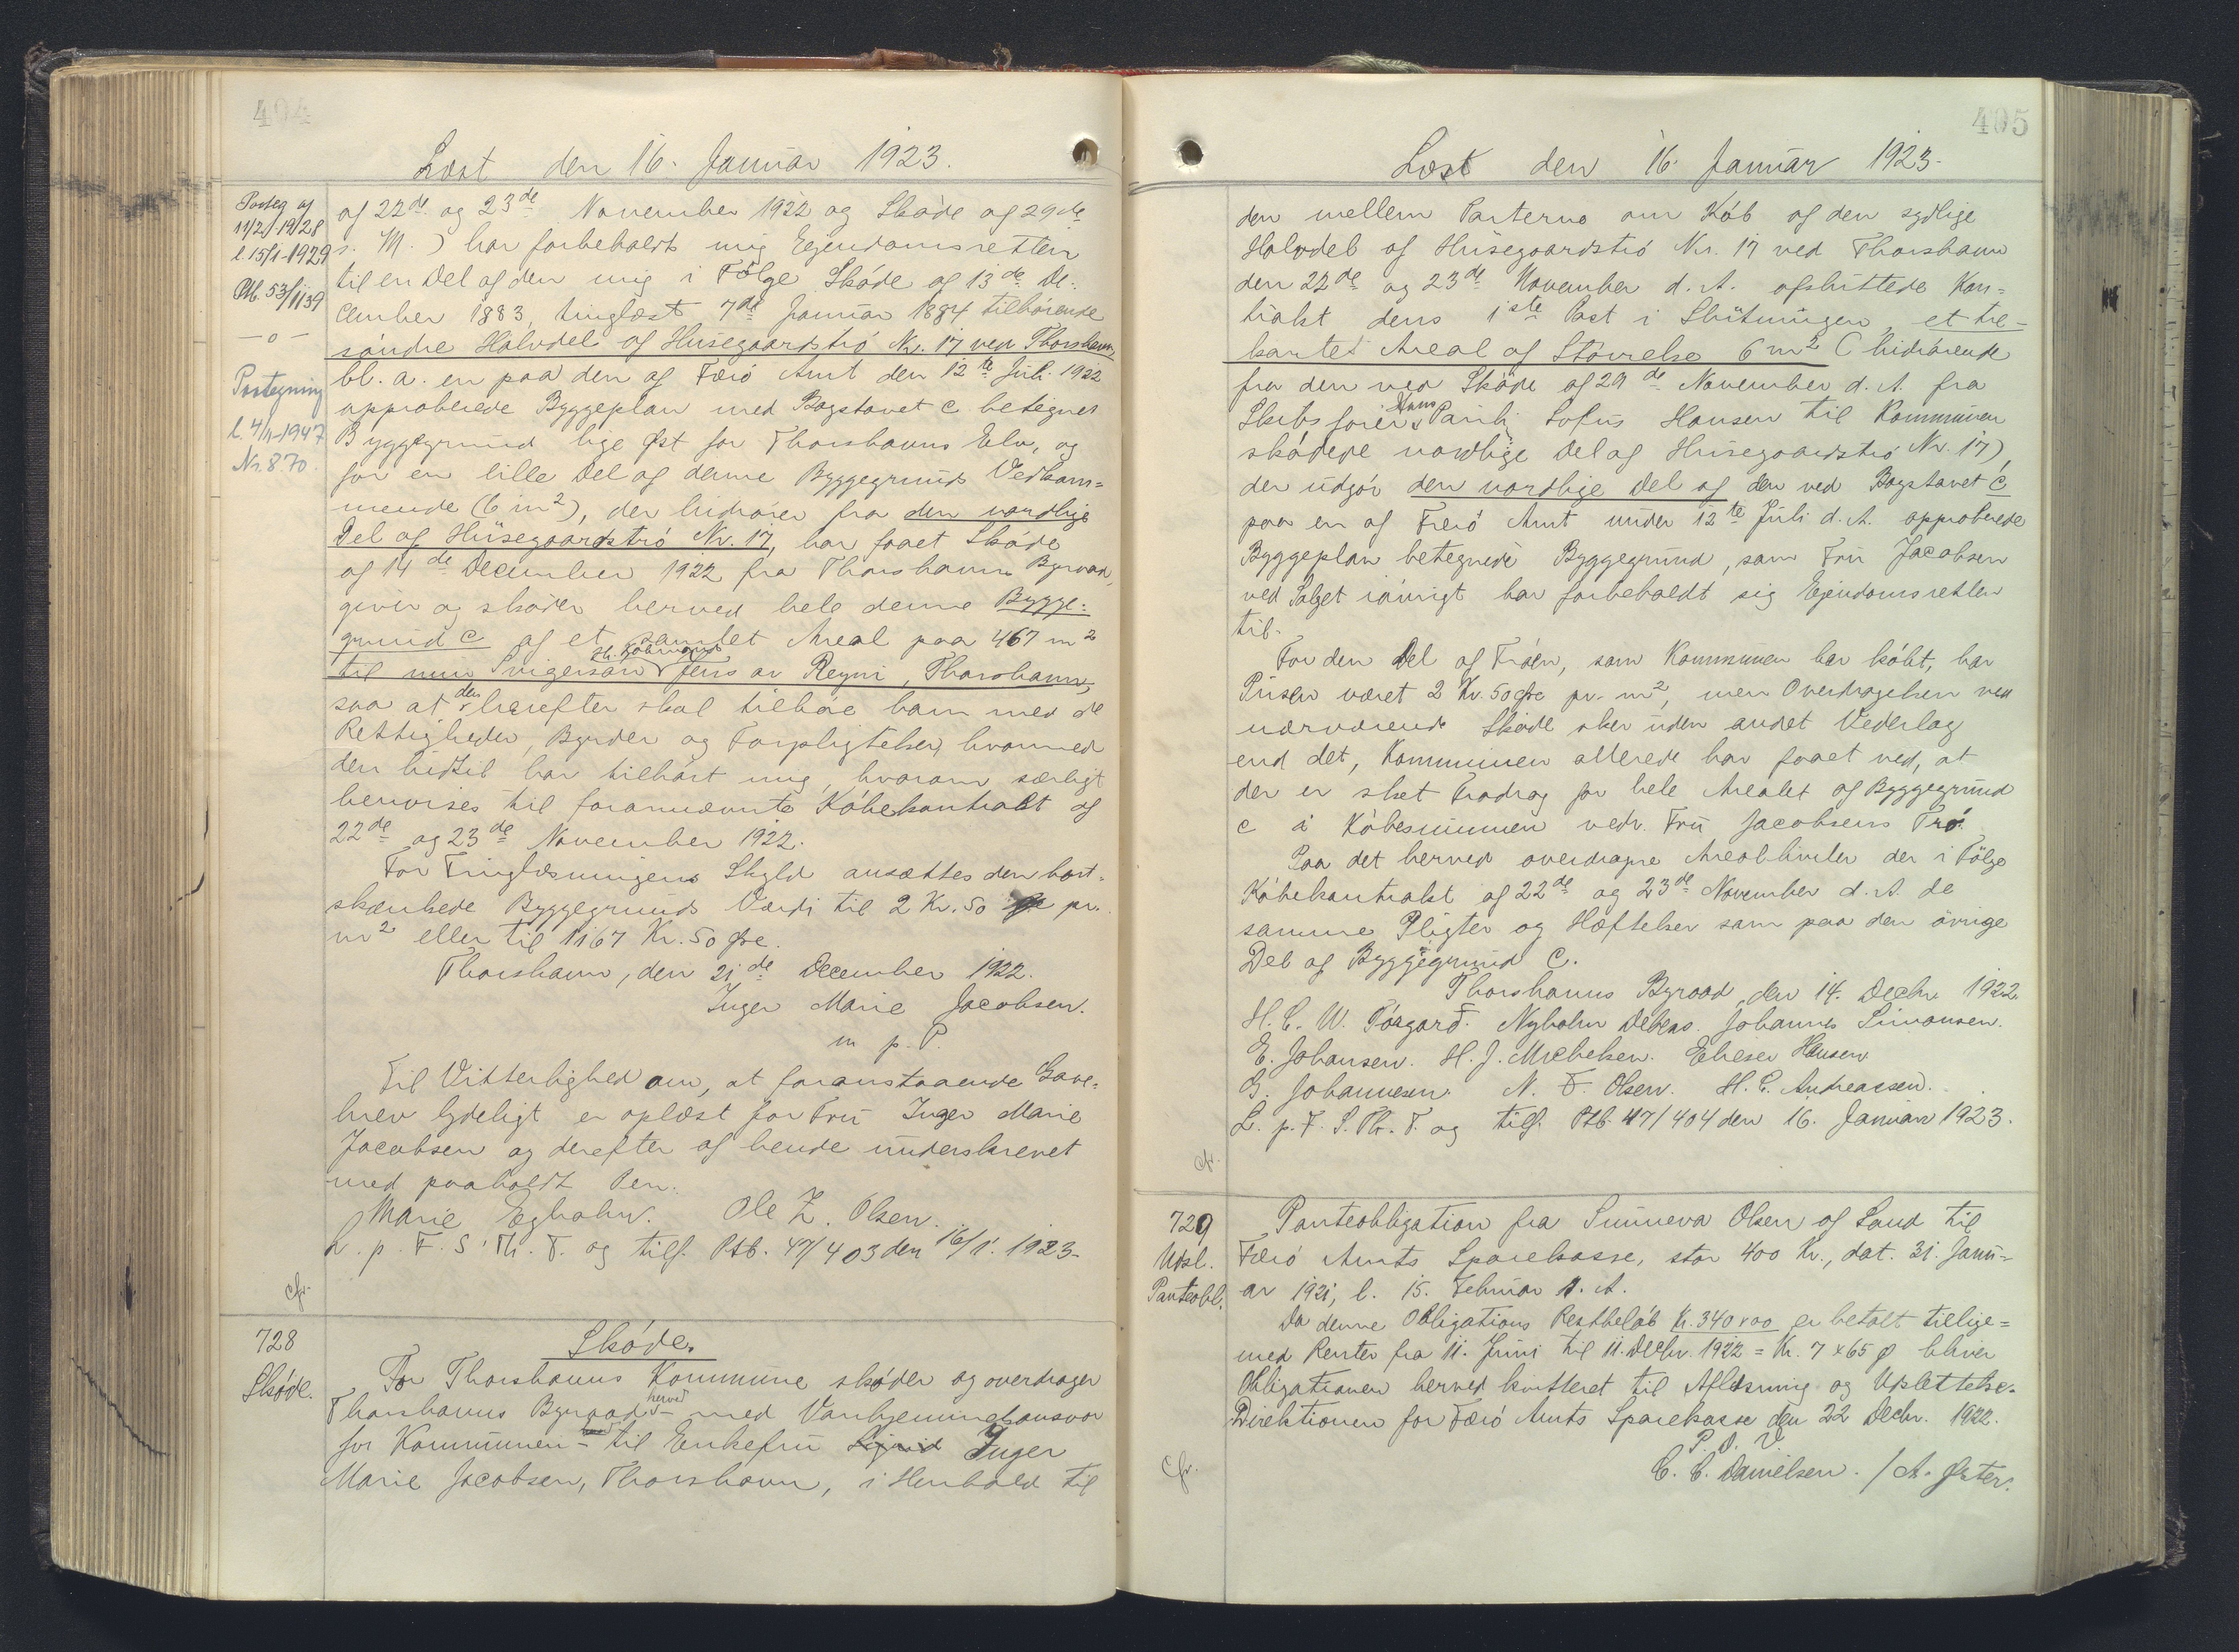 404
Læst den 16. Januar 1923.
Posteg. af
11/2-1928
l. 15/1-1929
Ptb. 53/1139
—o—
Postegning
l. 4/11-1947
Nr. 870.
af 22de og 23de November 1922 og Skøde af 29de
s. M.) har forbeholdt mig Ejendomsretten
til en Del af den mig i Følge Skøde af 13de De-
cember 1883, tinglæst 7de Januar 1884 tilhørende
søndre Halvdel af Húsegaardstrø Nr. 17 ved Thorshavn,
bl. a. en paa den af Færø Amt den 12te Juli 1922
approberede Byggeplan med Bogstavet c betegnet
Byggegrund lige Øst for Thorshavns Elv, og
for en lille Del af denne Byggegrunds Vedkom-
mende (6 m²), der hidrører fra den nordlige
Del af Húsegaardstrø Nr. 17, har faaet Skøde
af 14de December 1922 fra Thorshavns Byraad,
giver og skøder herved hele denne Bygge-
grund c af et samlet Areal paa 467 m²
til min Svigersøn Hr. Købmand Jens av Reyni, Thorshavn,
saa at den herefter skal tilhøre ham med de
Rettigheder, Byrder og Forpligtelser, hvormed
den hidtil har tilhørt mig, hvorom særligt
henvises til forannævnte Købekontrakt af
22de og 23de November 1922.
For Tinglæsningens Skyld ansættes den bort-
skænkede Byggegrunds Værdi til 2 Kr. 50 Øre pr.
m² eller til 1167 Kr. 50 Øre.
Thorshavn, den 21de December 1922.
Inger Marie Jacobsen.
m. p. P.
Til Vitterlighed om, at foranstaaende Gave-
brev lydeligt er oplæst for Fru Inger Marie
Jacobsen og derefter af hende underskrevet
med paaholdt Pen.
Marie Egholm. Ole Z. Olsen.
L. p. F. S. Th. T. og tilf. Ptb. 47/403 den 16/1. 1923.
cfr.
728
Skøde.
Skøde.
For Thorshavns Kommune skøder og overdrager
Thorshavns Byraad herved – med Vanhjemmelsansvar
for Kommunen – til Enkefru Sigrid Inger
Marie Jacobsen, Thorshavn, i Henhold til
405
Læst den 16. Januar 1923.
den mellem Parterne om Køb af den sydlige
Halvdel af Húsegaardstrø Nr. 17 ved Thorshavn
den 22de og 23de November d. A. afsluttede Kon-
trakt dens 1ste Post i Slutningen, et tre-
kantet Areal af Størrelse 6 m² (hidrørende
fra den ved Skøde af 29de November d. A. fra
Skibsfører Hans Pauli Sofus Hansen til Kommunen
skødede nordlige Del af Húsegaardstrø Nr. 17),
der udgør den nordlige Del af den ved Bogstavet c
paa en af Færø Amt under 12te Juli d. A. approberede
Byggeplan betegnede Byggegrund, som Fru Jacobsen
ved Salget iøvrigt har forbeholdt sig Ejendomsretten
til.
For den Del af Trøen, som Kommunen har købt, har
Prisen været 2 Kr. 50 Øre pr. m², men Overdragelsen ved
nærværende Skøde sker uden andet Vederlag
end det, Kommunen allerede har faaet ved, at
der er sket Fradrag for hele Arealet af Byggegrund
c i Købesummen vedr. Fru Jacobsens Trø.
Paa det herved overdragne Areal hviler der i Følge
Købekontrakt af 22de og 23de November d. A. de
samme Pligter og Hæftelser som paa den øvrige
Del af Byggegrund C.
Thorshavns Byraad, den 14. Decbr. 1922.
H. C. W. Tórgarð. Nyholm Debess. Johannes Simonsen.
E. Johansen. H. J. Michelsen. Elieser Hansen.
G. Johannesen. N. F. Olsen. H. C. Andreassen.
L. p. F. S. Th. T. og tilf. Ptb. 47/404 den 16. Januar 1923.
cfr.
729
Udsl.
Panteobl.
Panteobligation fra Sunneva Olsen af Sand til
Færø Amts Sparekasse, stor 400 Kr., dat. 31. Janu-
ar 1921, l. 15. Februar s. A.
Da denne Obligations Restbeløb Kr. 340 x 00 er betalt tillige-
med Renter fra 11. Juni til 11. Decbr. 1922 = Kr. 7 x 65 ø bliver
Obligationen herved kvitteret til Aflæsning og Udslettelse.
Direktionen for Færø Amts Sparekasse den 22 Decbr. 1922.
P. D. V.
C. C. Danielsen. / A. Øster.
cfr.